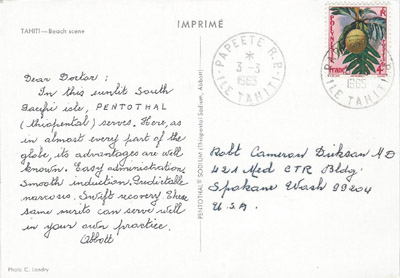 TAHITI — Beach scene
IMPRIMÉ
Dear Doctor:
In this sunlit South
Pacific isle, PENTOTHAL
(thiopental) serves. Here, as
in almost every part of the
globe, its advantages are well
known. Easy administration.
Smooth induction. Predictable
narcosis. Swift recovery. These
same merits can serve well
in your own practice.
Abbott
Photo C. Landry
PENTOTHAL® SODIUM (Thiopental Sodium, Abbott)
PAPEETE R.P.
*
3-3
1965
ILE TAHITI
1965
ILE TAHITI
Robt Cameron Dirksen MD
421 Med CTR Bldg.
Spokane Wash 99204
U.S.A.